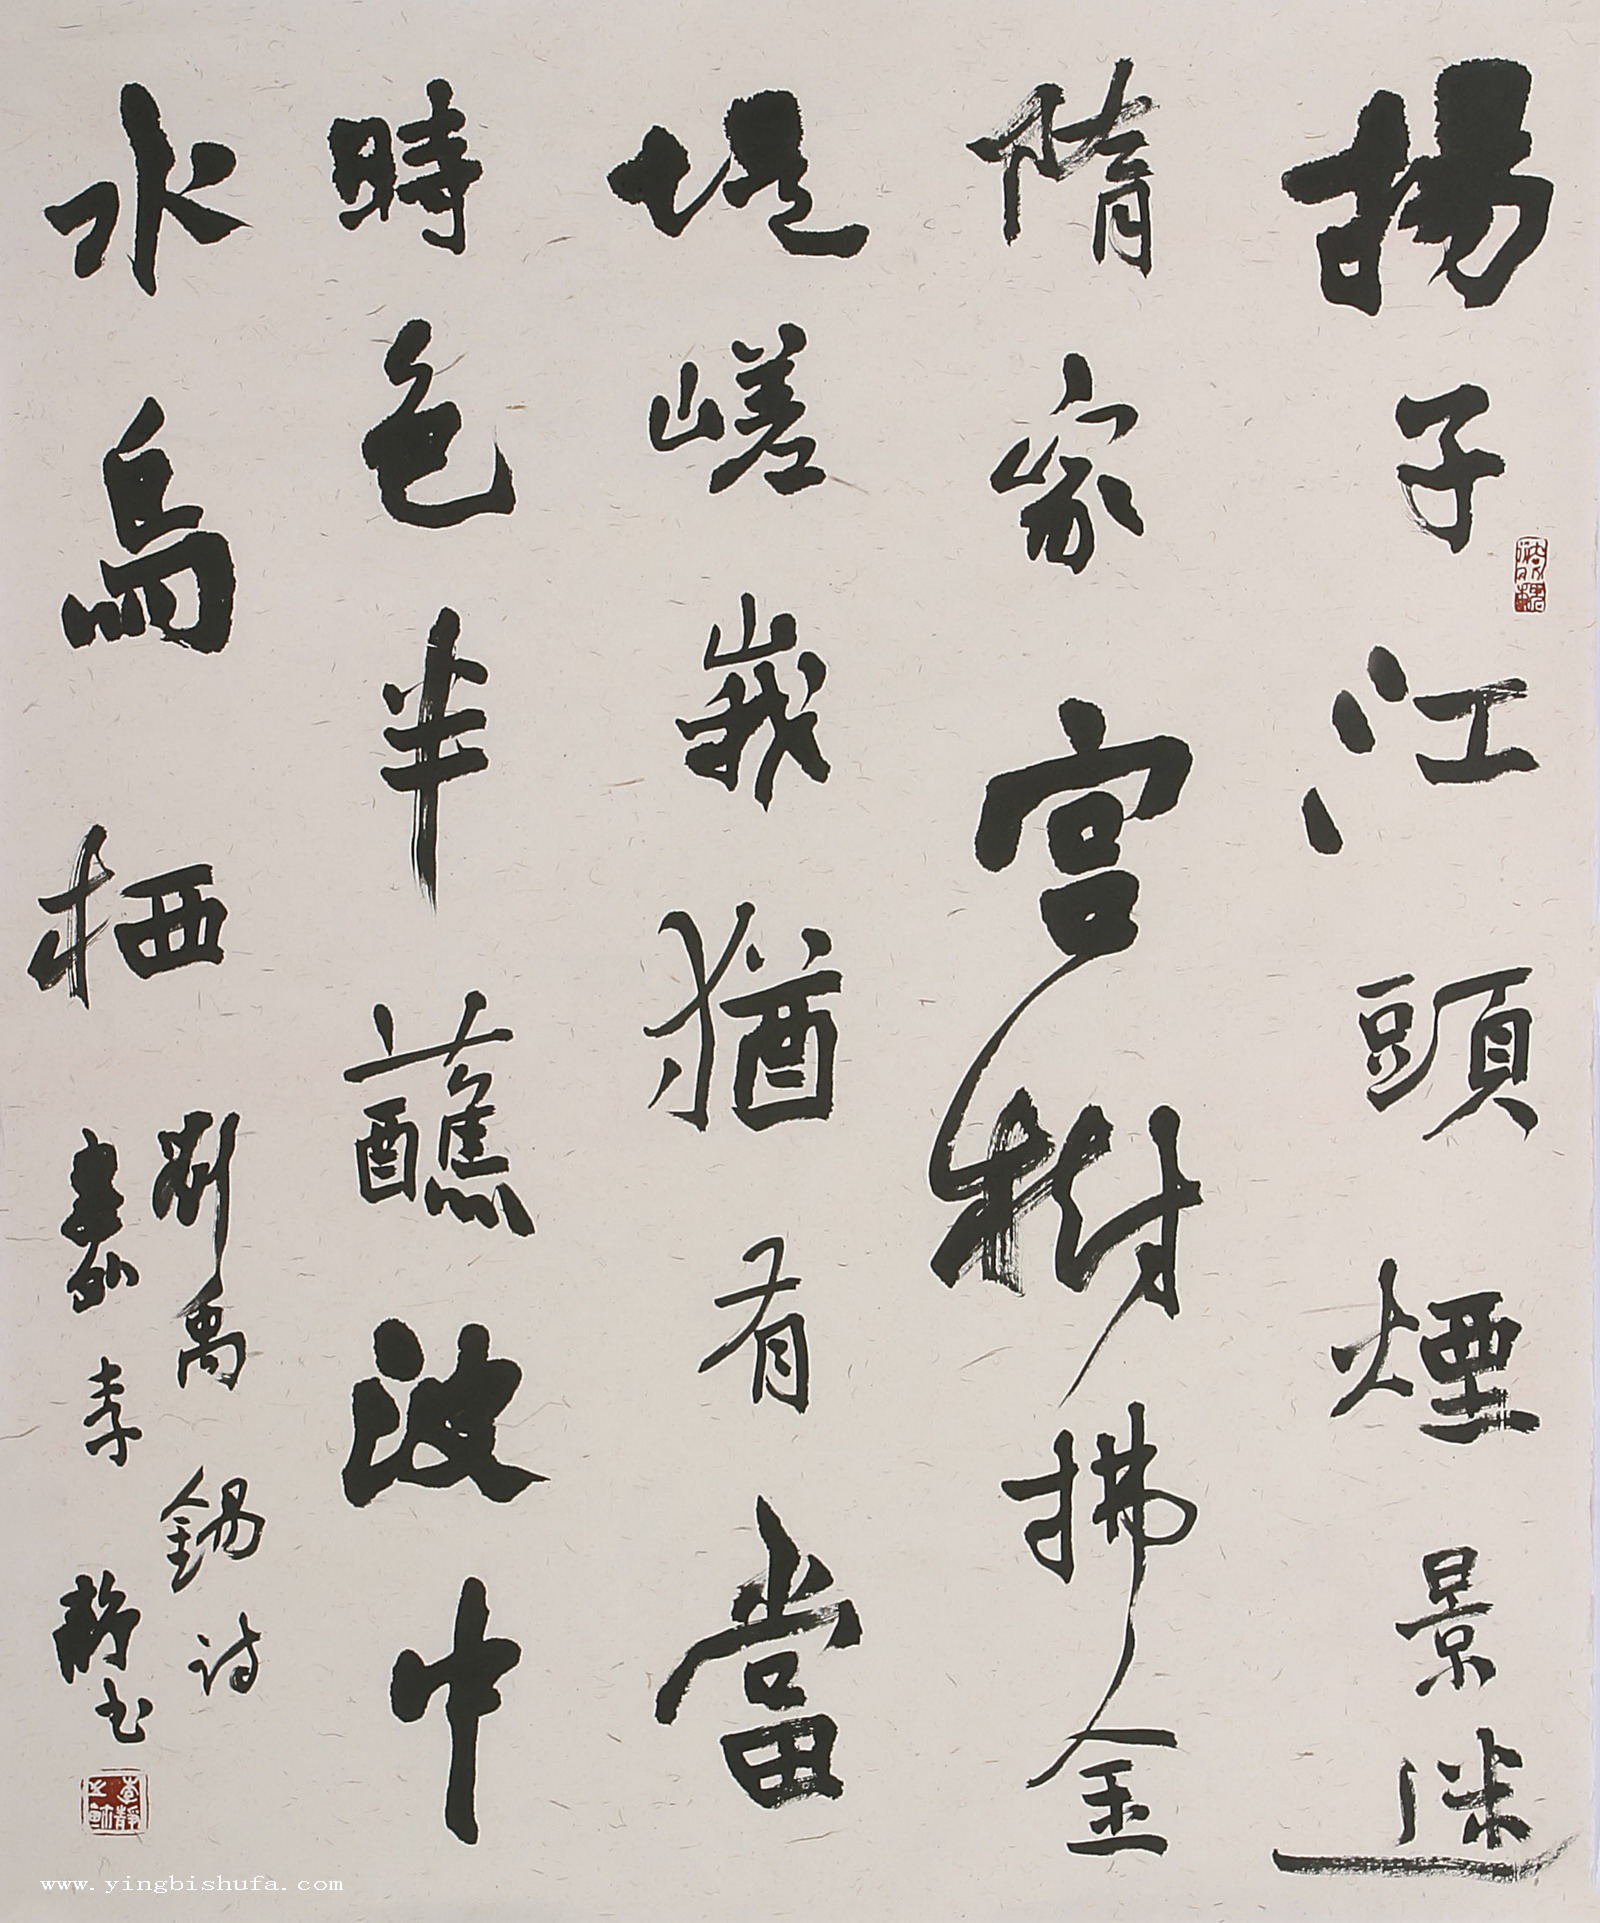 揚子江頭煙景迷
隋家宮樹拂金
堤嵯峩猶有當
時色半蘸波中
水鳥栖
劉禹錫詩
李靜书
李靜
www.yingbishufa.com